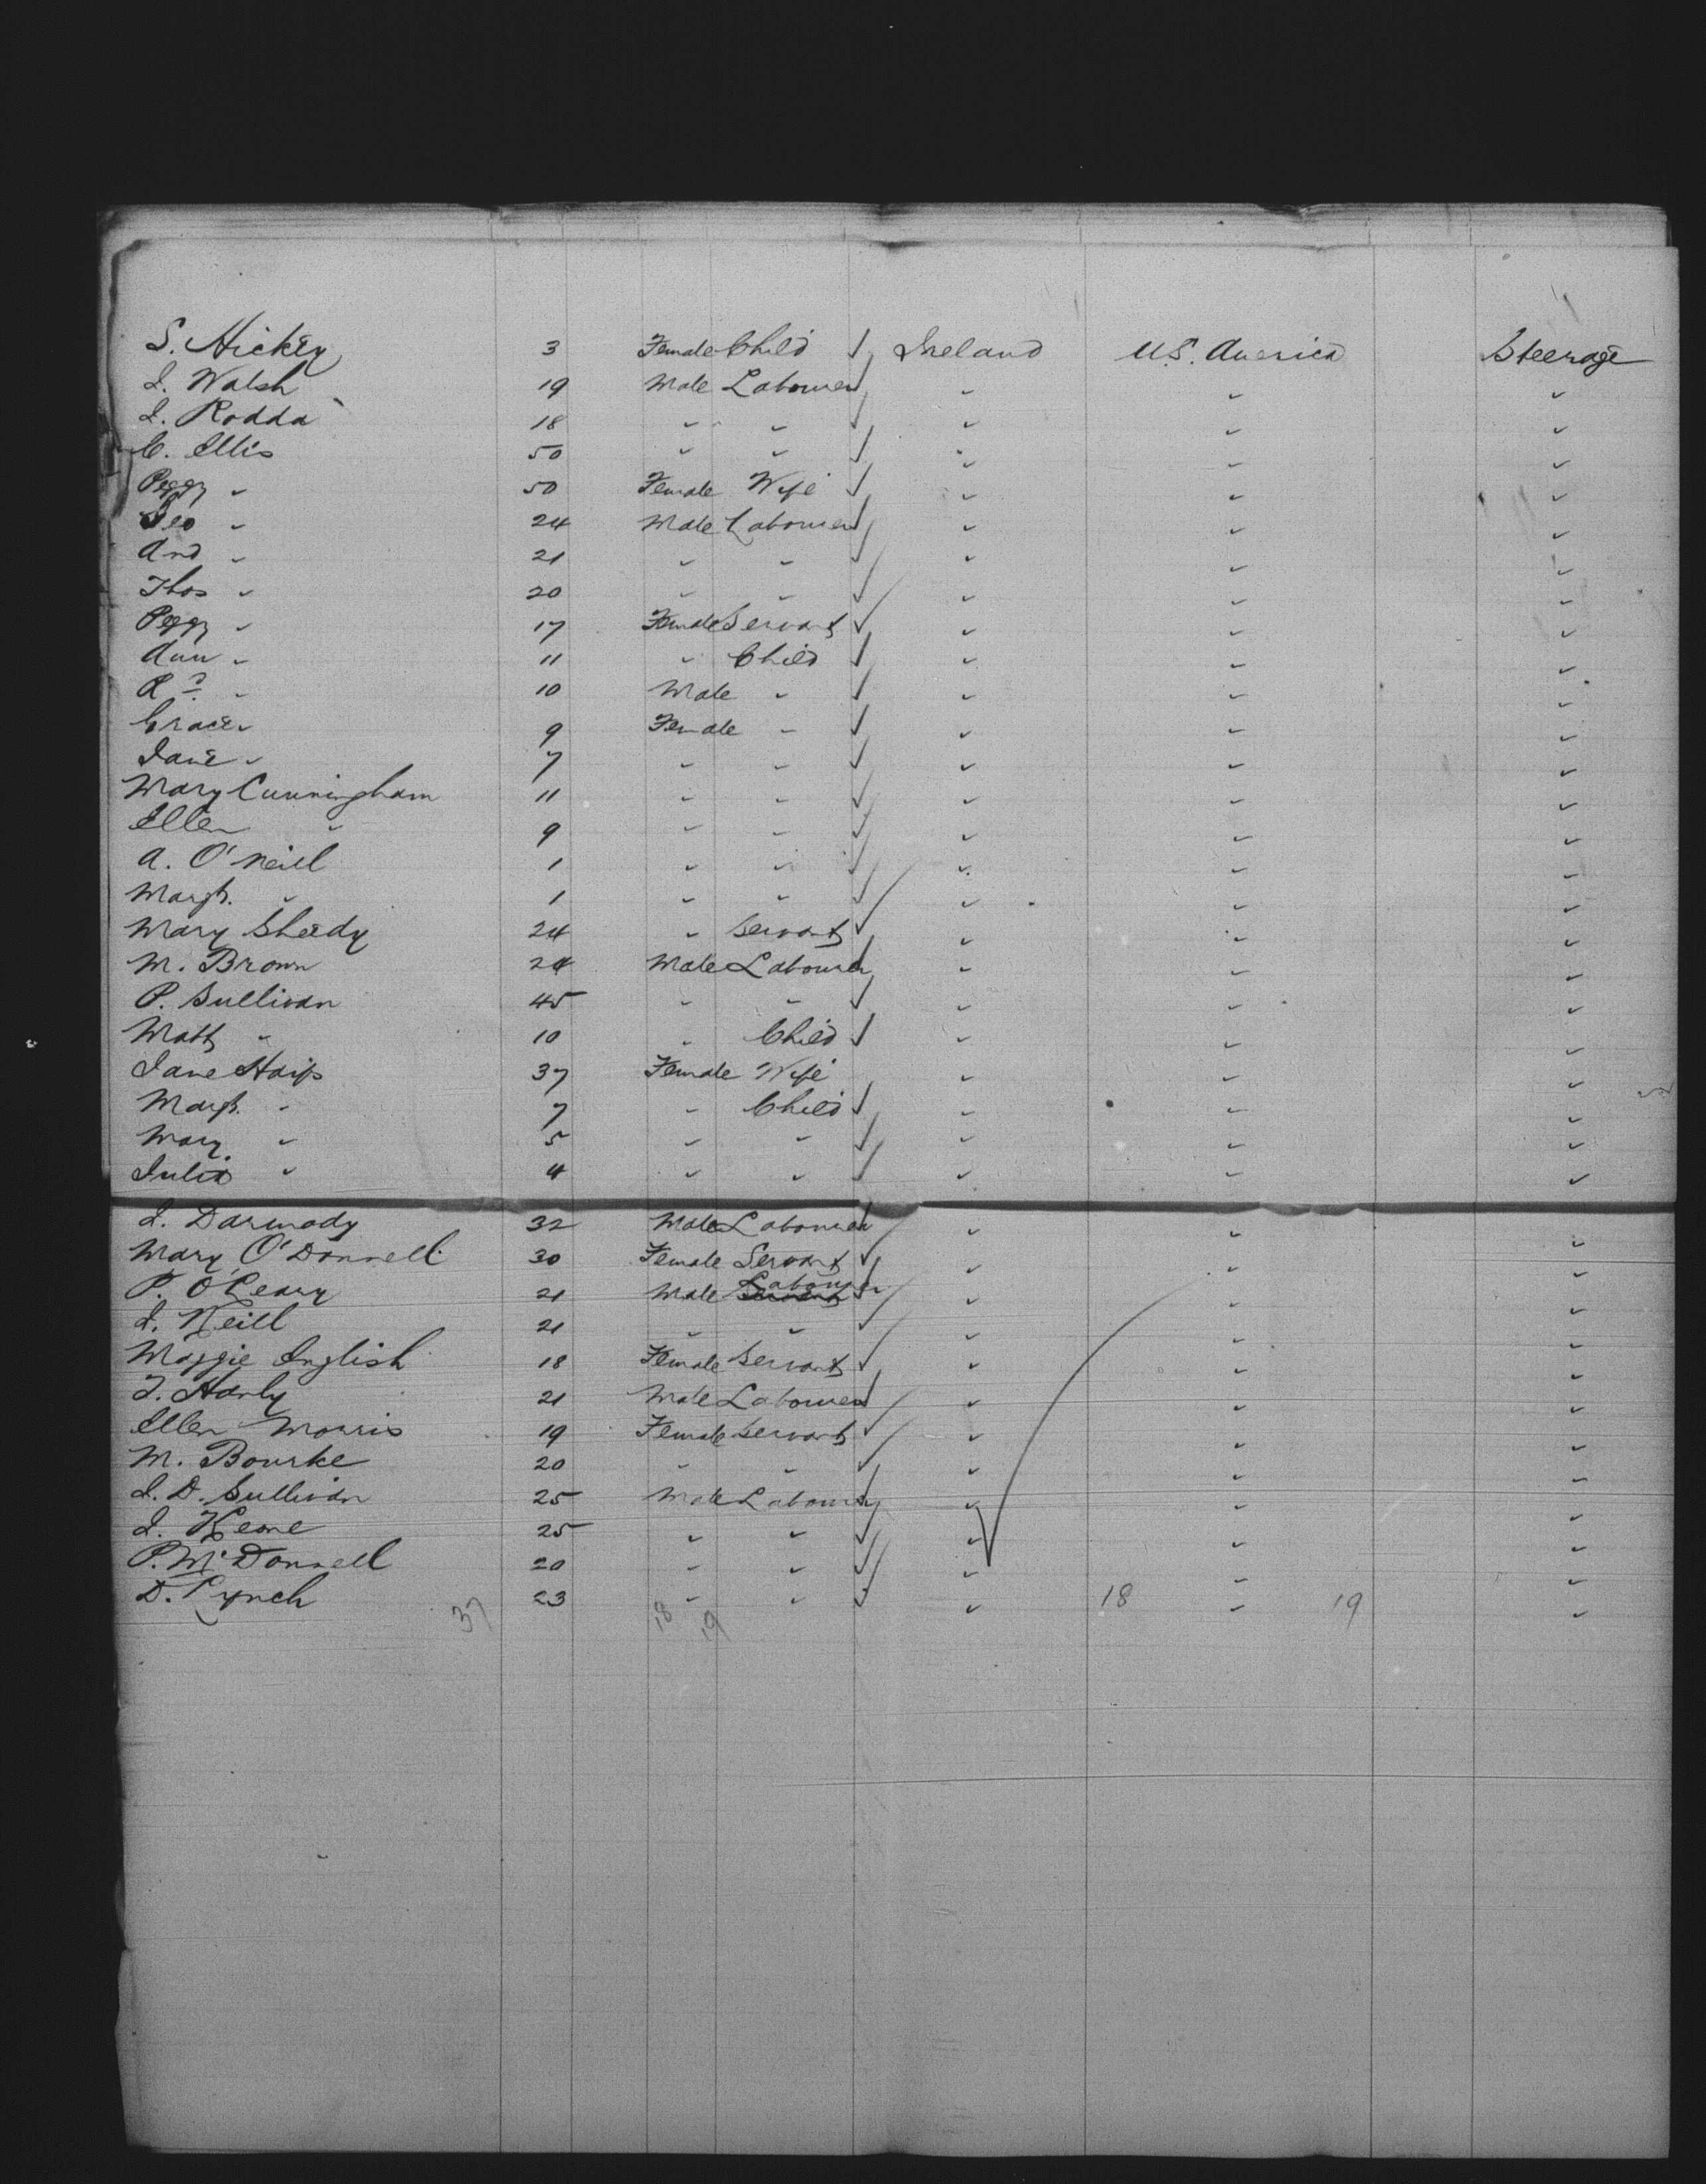 S. Hickey 3 Female Child Ireland U.S. America Steerage
J. Walsh 19 Male Labourer " " "
J. Rodda 18 " " " " "
C. Ellis 50 " " " " "
Peggy " 50 Female Wife " " "
Geo " 24 Male Labourer " " "
And " 21 " " " " "
Thos " 20 " " " " "
Peggy " 17 Female Servant " " "
Ann " 11 " Child " " "
Rd " 10 Male " " " "
Grace " 9 Female " " " "
Jane " 7 " " " " "
Mary Cunningham 11 " " " " "
Ellen " 9 " " " " "
A. O'Neill 1 " " " " "
Margt. " 1 " " " " "
Mary Sheedy 24 " Servant " " "
M. Brown 24 Male Labourer " " "
P. Sullivan 45 " " " " "
Matt " 10 " Child " " "
Jane 37 Female Wife " " "
Margt. " 7 " Child " " "
Mary " 5 " " " " "
Julia " 4 " " " " "
J. Darmody 32 Male Labourer " " "
Mary O'Donnell 30 Female Servant " " "
P. O'Leary 21 Male Servant Labourer " " "
J. Neill 21 " " " " "
Maggie English 18 Female Servant " " "
T. Hanly 21 Male Labourer " " "
Ellen Morris 19 Female Servant " " "
M. Bourke 20 " " " " "
J. D. Sullivan 25 Male Labourer " " "
J. Keane 25 " " " " "
P. McDonnell 20 " " " " "
D. Lynch 23 " " " " "
37 18 19 18 19